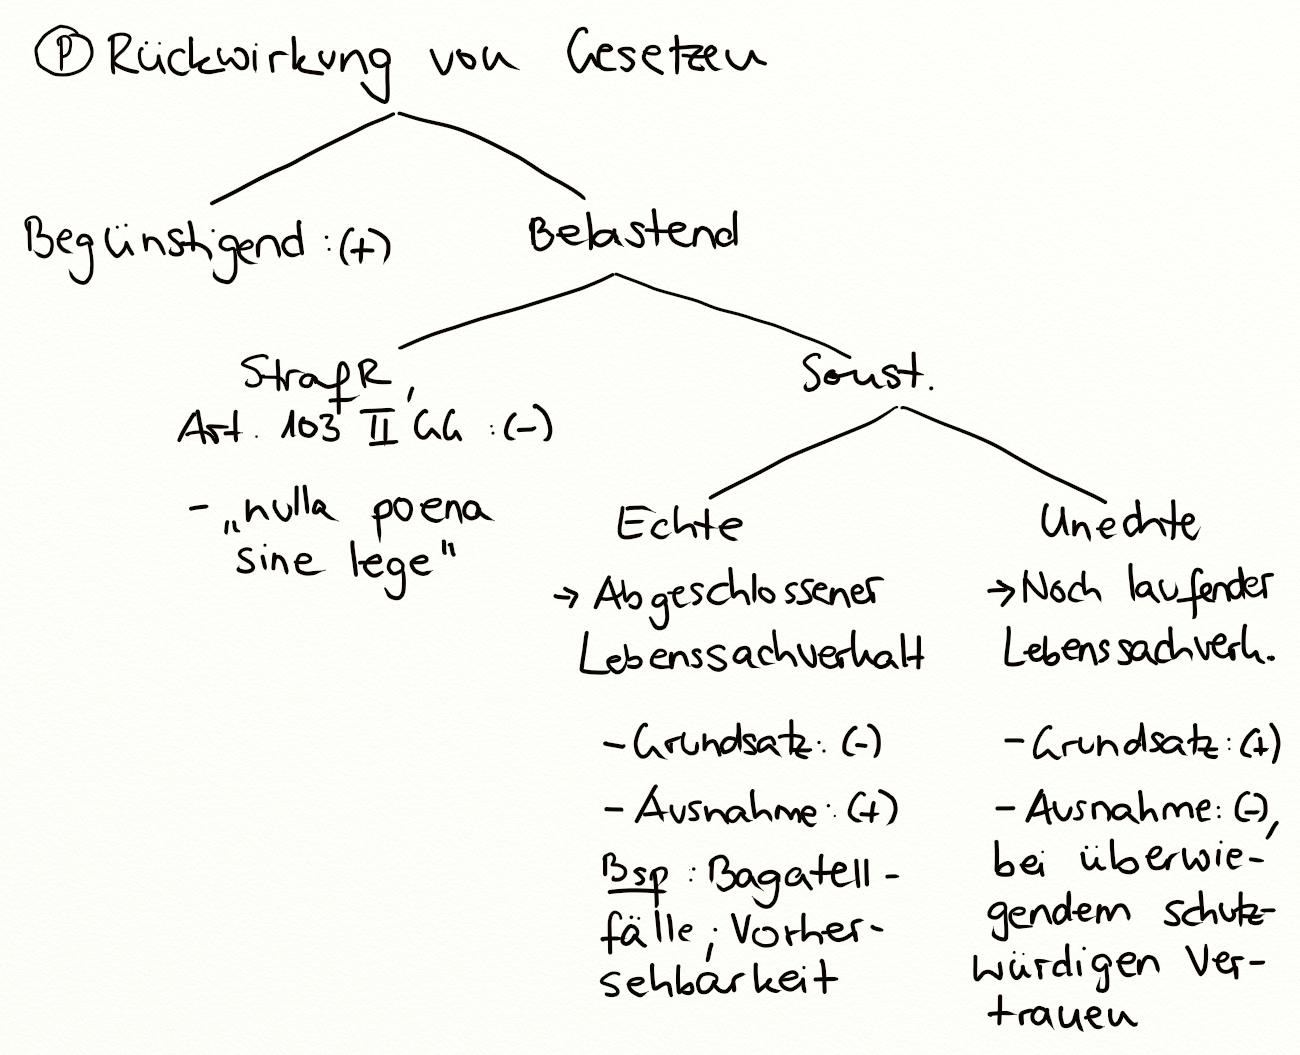 Ⓟ Rückwirkung von Gesetzen
Begünstigend: (+)
Belastend
StrafR,
Art. 103 II GG: (-)
- „nulla poena
sine lege"
Sonst.
Echte
→ Abgeschlossener
Lebenssachverhalt
- Grundsatz: (-)
- Ausnahme: (+)
Bsp: Bagatell-
fälle; Vorher-
sehbarkeit
Unechte
→ Noch laufender
Lebenssachverh.
- Grundsatz: (+)
- Ausnahme: (-),
bei überwie-
gendem schutz-
würdigen Ver-
trauen